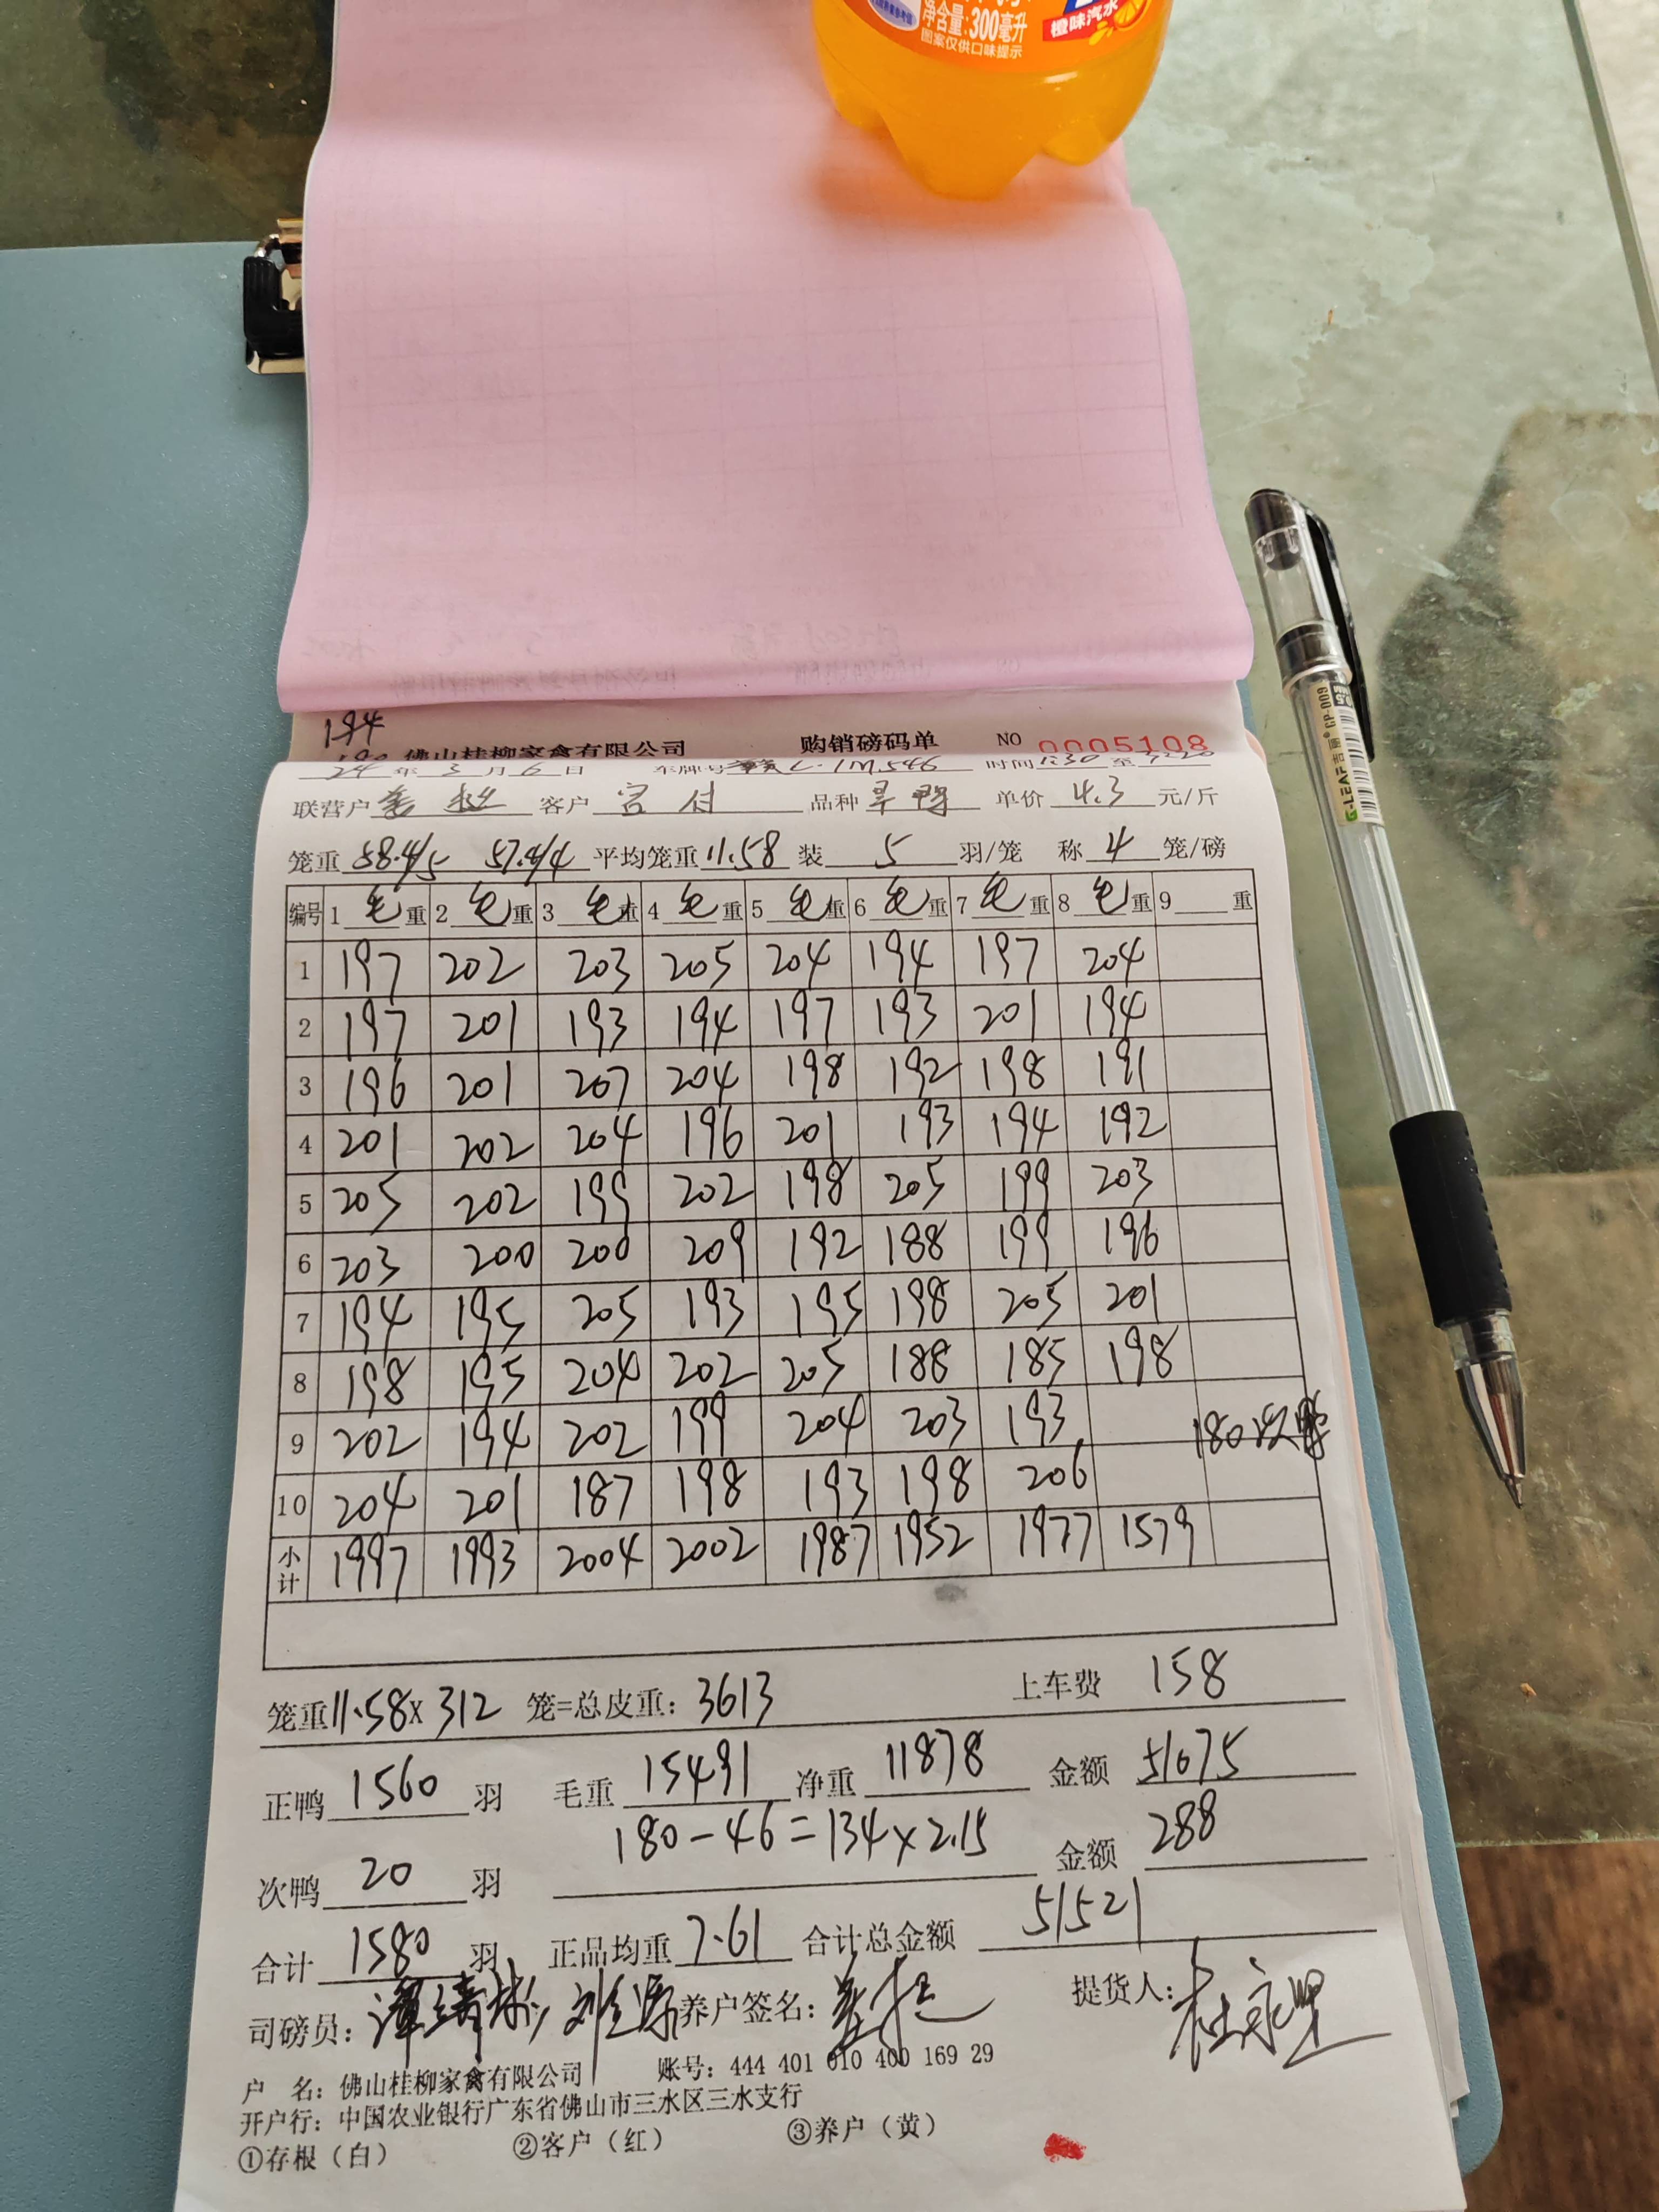 净含量:300毫升
图案仅供口味提示
橙味汽水
G-LEAF 吉丽® GP-009
194
佛山桂柳家禽有限公司 购销磅码单 NO 0005108
24 年 3 月 6 日 车牌号 L·1M546 时间 1:30 至
联营户 客户 品种 旱鸭 单价 4.3 元/斤
笼重 58.4/5 57.4/4 平均笼重 11.58 装 5 羽/笼 称 4 笼/磅
编号 1 毛 重 2 毛 重 3 毛 重 4 毛 重 5 毛 重 6 毛 重 7 毛 重 8 毛 重 9 重
1 197 202 203 205 204 194 197 204
2 197 201 193 194 197 193 201 194
3 196 201 207 204 198 192 198 191
4 201 202 204 196 201 193 194 192
5 205 202 199 202 198 205 199 203
6 203 200 200 209 192 188 199 196
7 194 195 205 193 195 198 205 201
8 198 195 204 202 205 188 185 198
9 202 194 202 199 204 203 193 180次鸭
10 204 201 187 198 193 198 206
小计 1997 1993 2004 2002 1987 1952 1977 1579
笼重11.58X 312 笼=总皮重: 3613 上车费 158
正鸭 1560 羽 毛重 15491 净重 11878 金额 51075
次鸭 20 羽 180-46=134×2.15 金额 288
合计 1580 羽 正品均重 7.61 合计总金额 51521
司磅员: 养户签名: 提货人: 杜永坚
户 名: 佛山桂柳家禽有限公司 账号: 444 401 010 400 169 29
开户行: 中国农业银行广东省佛山市三水区三水支行
①存根(白) ②客户(红) ③养户(黄)